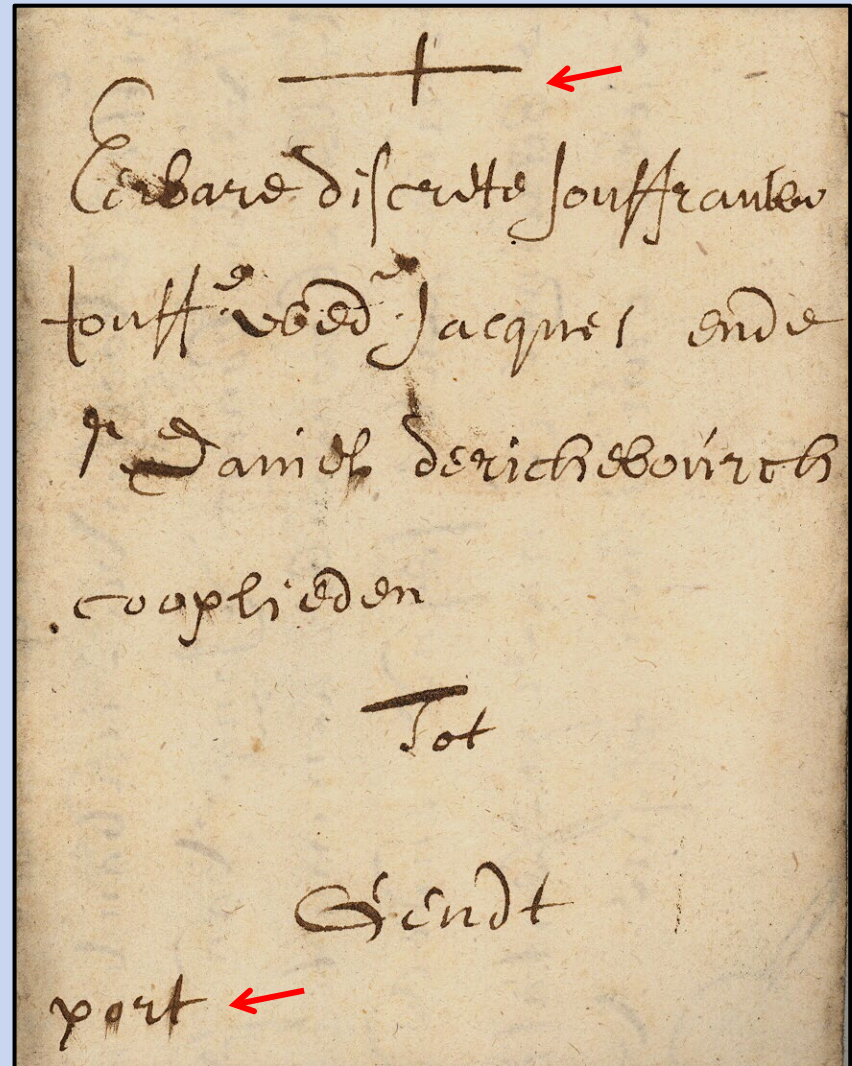 Eerbare discrete Jouffrauw
Jouff.e wed.e Jacques ende
Sr Daniel derichebourch
cooplieden
Tot
Gendt
port